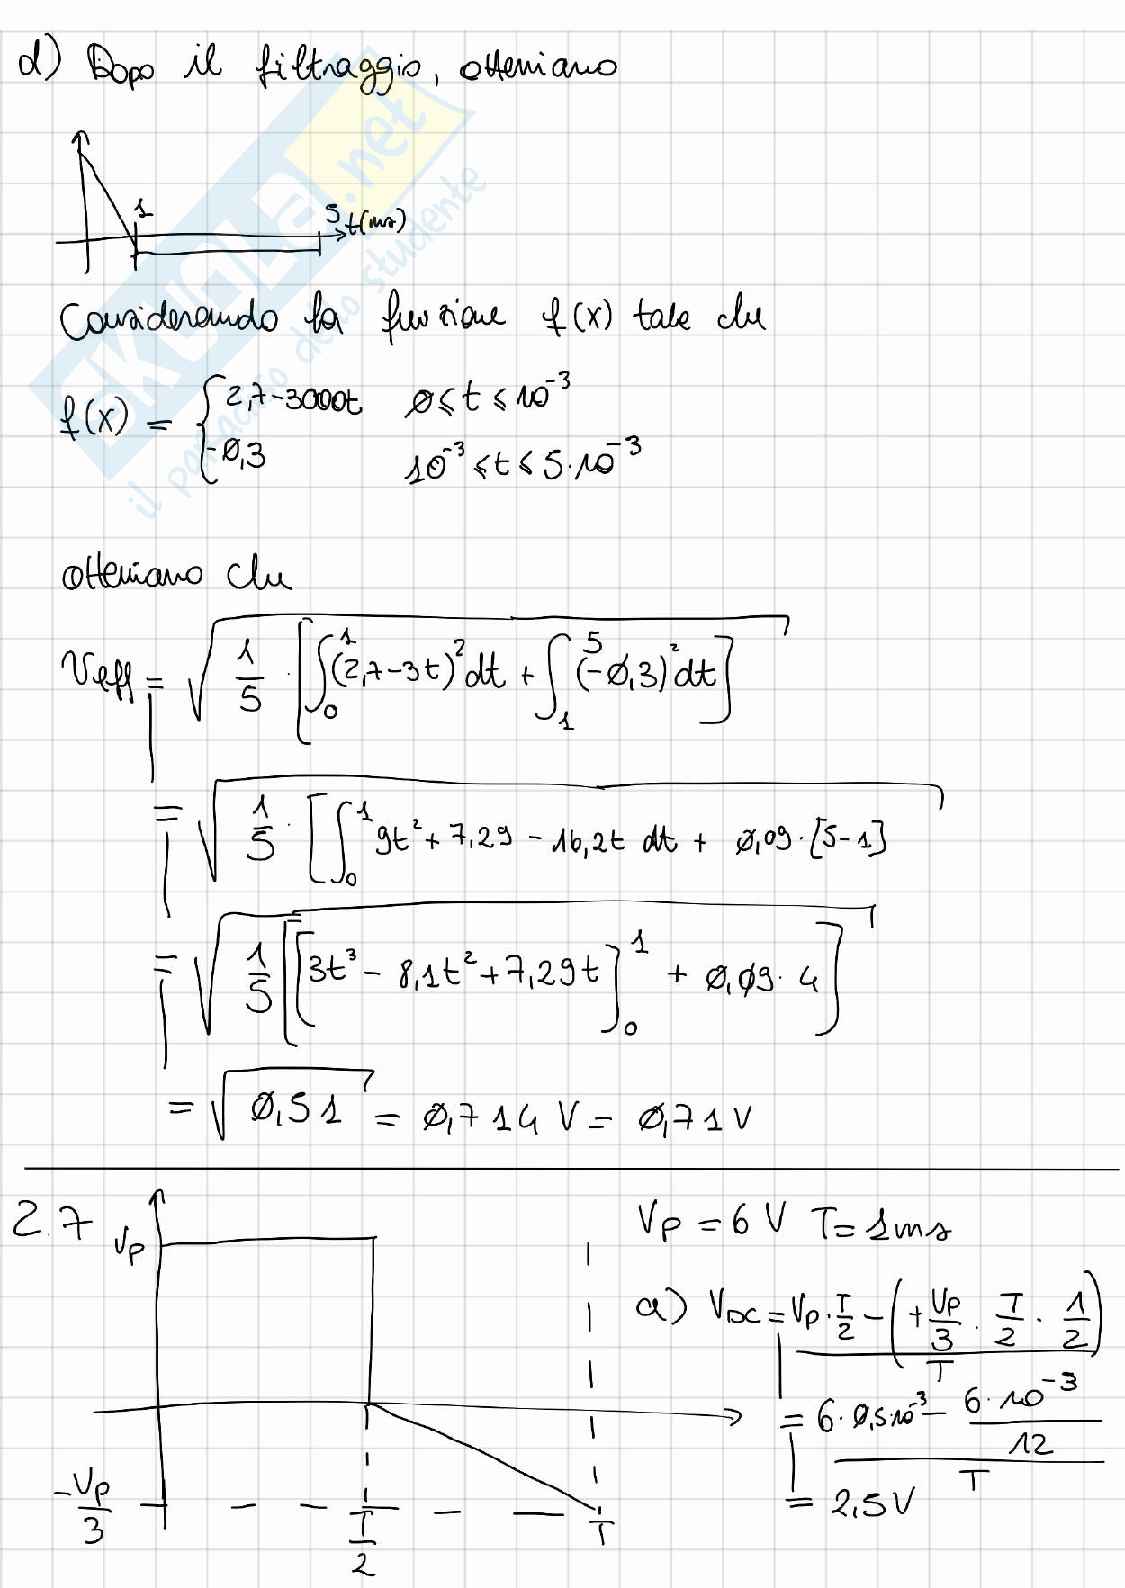 d) Dopo il filtraggio, otteniamo
1
5 t(ms)
Considerando la funzione f(x) tale che
f(x) = { 2,7-3000t   0 ≤ t ≤ 10^-3
-0,3   10^-3 ≤ t ≤ 5·10^-3
otteniamo che
Veff = √(1/5 · [∫_0^1 (2,7-3t)^2 dt + ∫_1^5 (-0,3)^2 dt])
= √(1/5 · [∫_0^1 9t^2 + 7,29 - 16,2t dt + 0,09·[5-1])
= √(1/5 [[3t^3 - 8,1t^2 + 7,29t]_0^1 + 0,09·4])
= √0,51 = 0,714 V = 0,71 V
2.7
Vp
-Vp/3
T/2
T
Vp = 6 V T = 1ms
a) VDC = (Vp·T/2 - (+Vp/3 · T/2 · 1/2))/T
= (6·0,5·10^-3 - 6·10^-3/12)/T
= 2,5V
SKUOLA.net
il portale dello studente